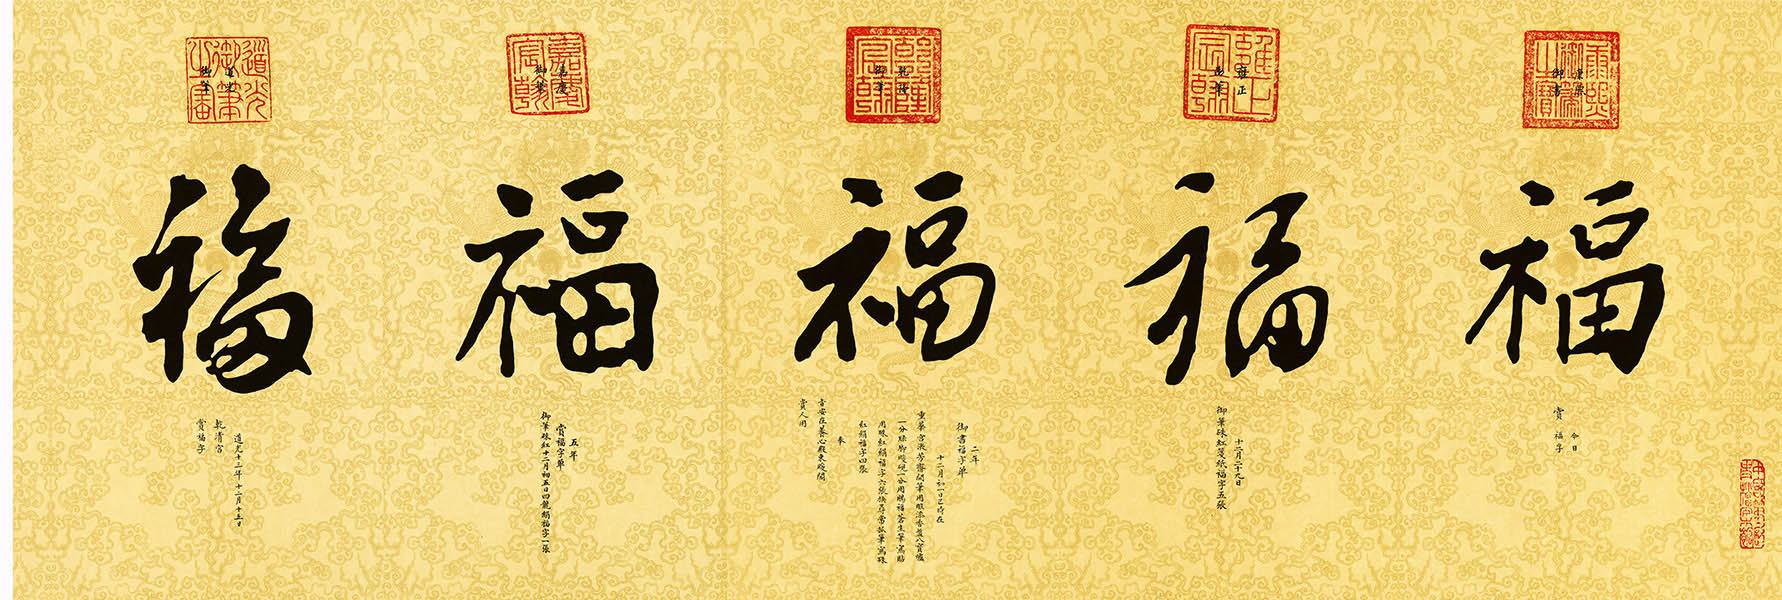 康熙御筆之寶
康熙
御書
福
今日
賞福字
雍正宸翰
雍正
御筆
福
十二月二十九日
御筆硃紅箋紙福字五張
乾隆宸翰
乾隆
御筆
福
二年
御書福字單
十二月初一日巳時在
重華宮漱芳齋開筆用雕漆香盤八寶爐
一分硃御墨碗一分用賜福蒼生筆寫貼
用硃紅絹福字六張換尋常執筆寫硃
紅絹福字四張
奉
旨安在養心殿東暖閣
賞人用
嘉慶宸翰
嘉慶
御筆
福
五年
賞福字單
御筆硃紅十二月初五日四龍絹福字一張
道光御筆之寶
道光
御筆
福
道光十三年十二月十五日
乾清宮
賞福字